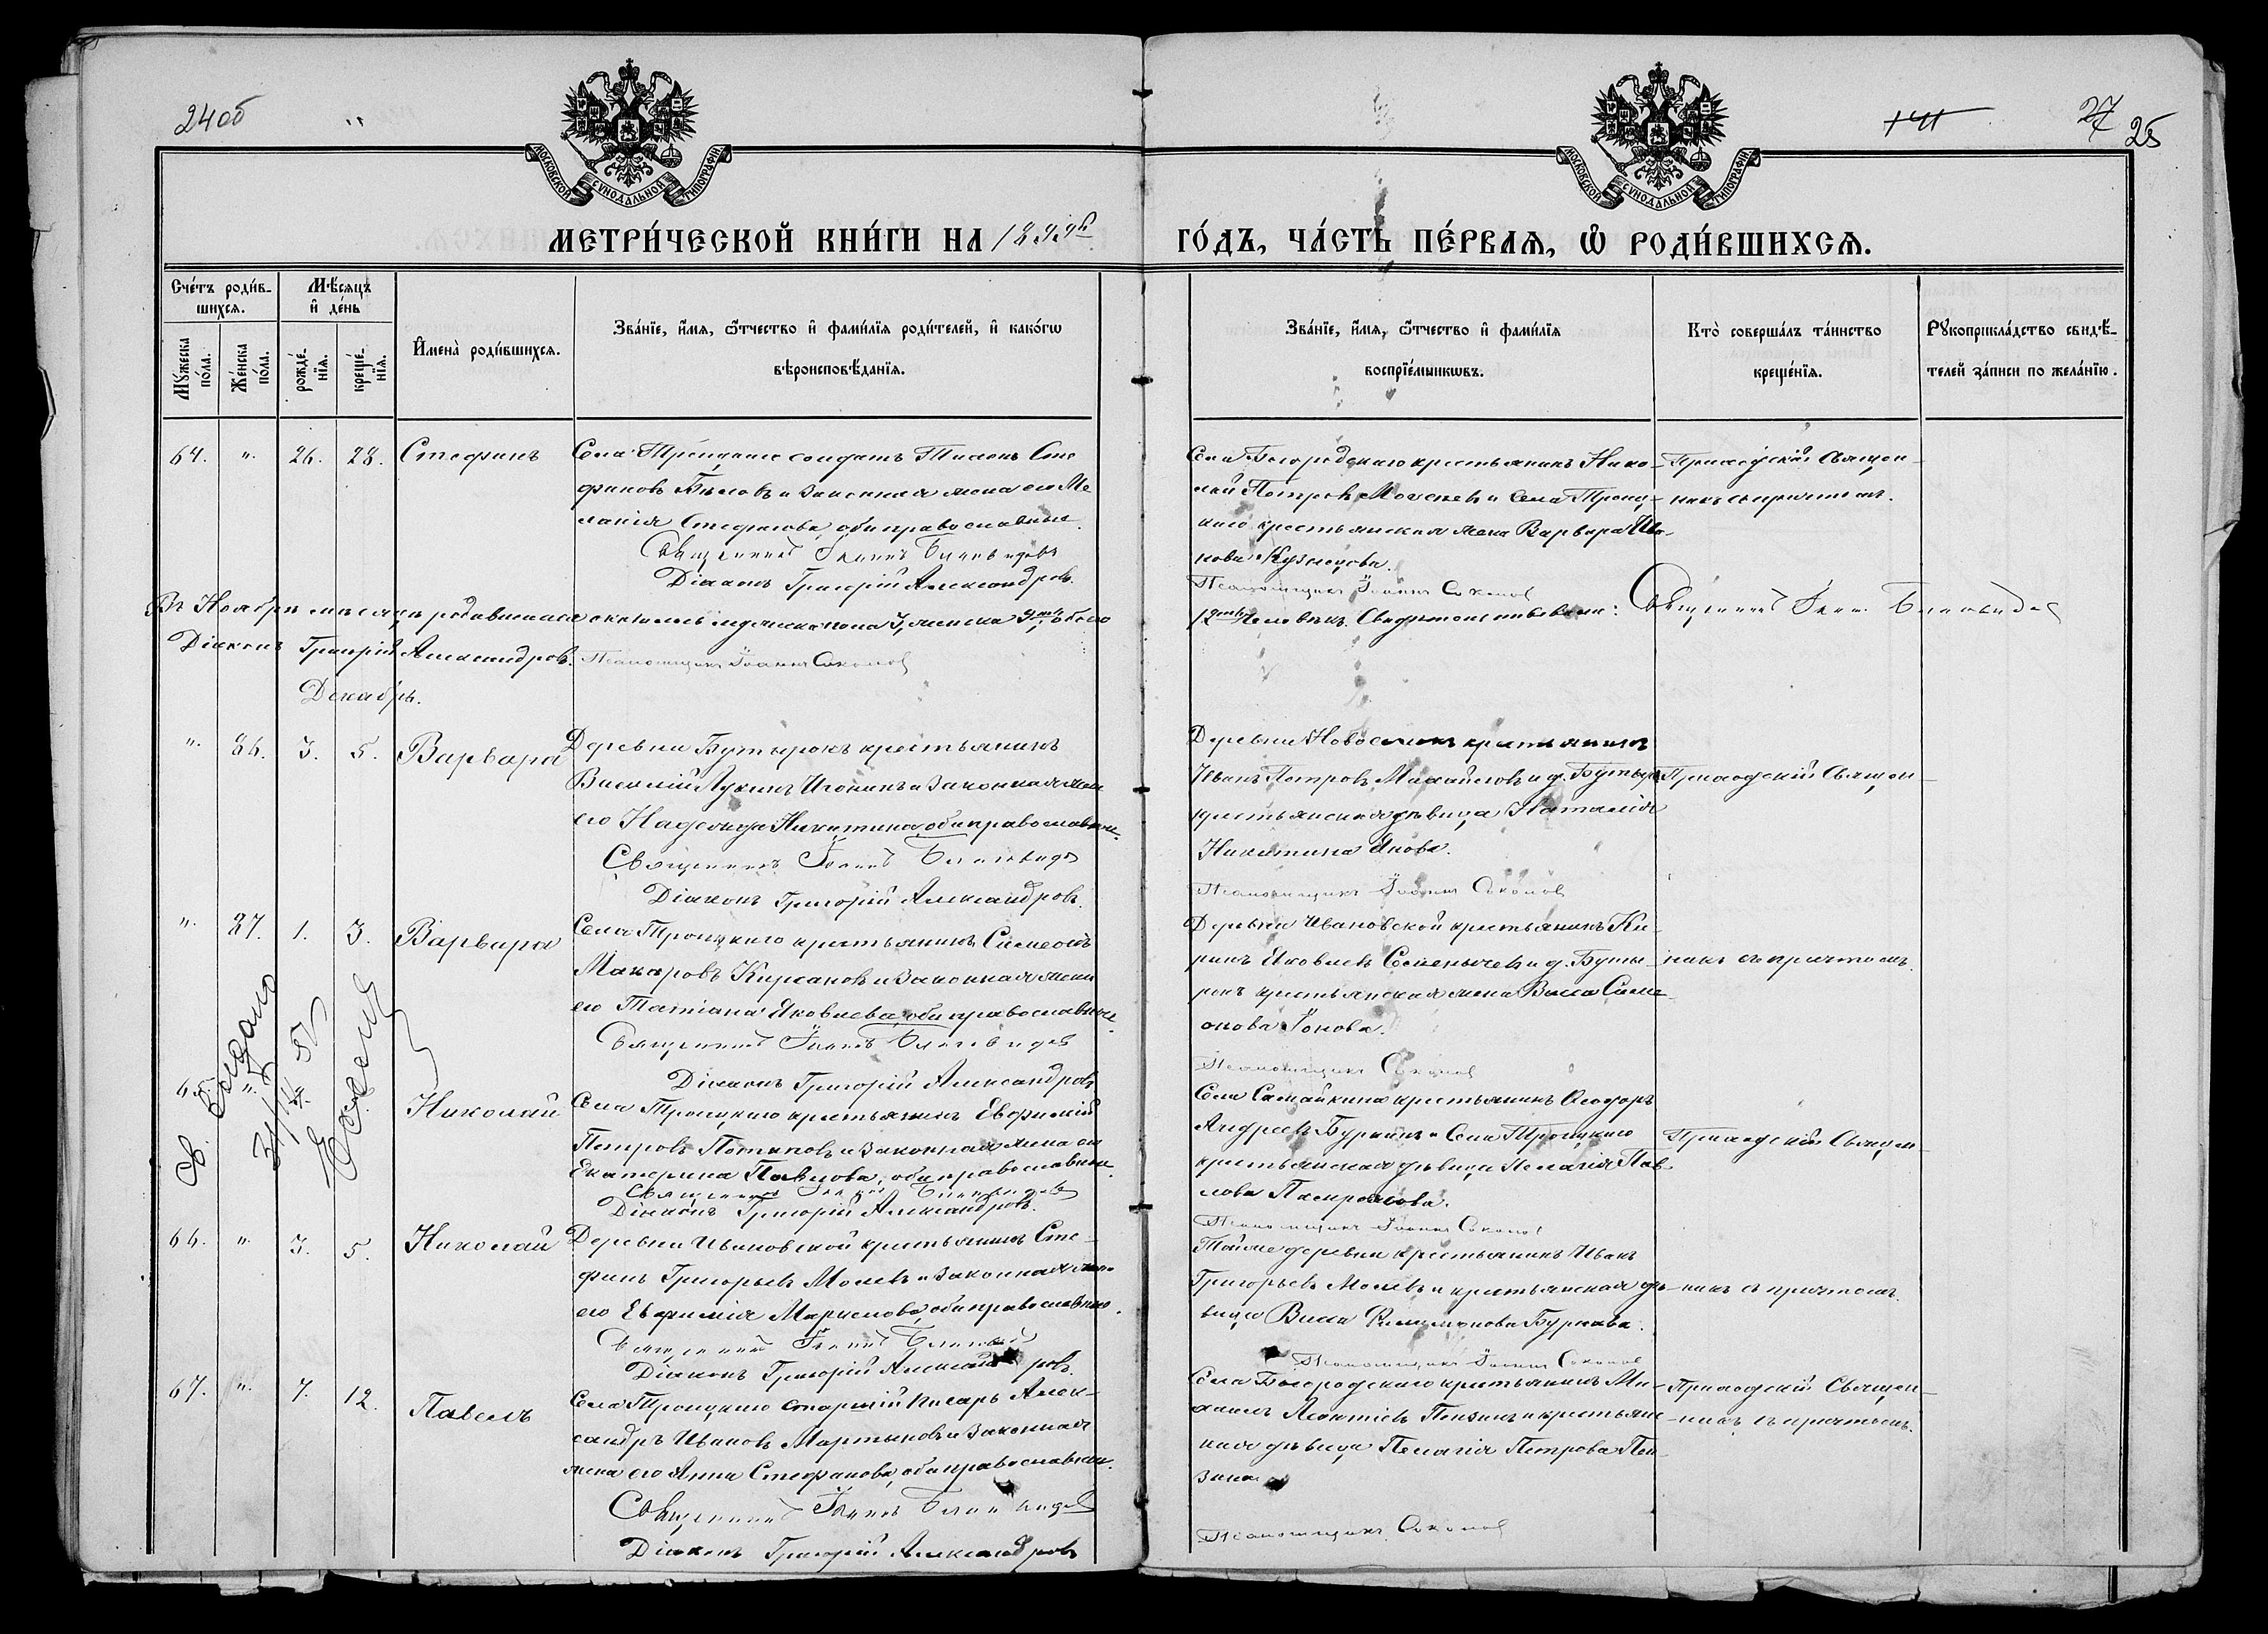 24 об
141
27 25
МОСКОВСКОЙ СѴНОДАЛЬНОЙ ТИПОГРАФІИ
МОСКОВСКОЙ СѴНОДАЛЬНОЙ ТИПОГРАФІИ
МЕТРИ́ЧЕСКОЙ КНИ́ГИ НА 1899й
ГО́ДЪ, ЧА́СТЬ ПЕ́РВАѦ, Ѡ҆ РОДИ́ВШИХСѦ.
Сче́тъ роди́в-
шихсѧ.
Мѣ́сѧцъ
и҆ де́нь
Мꙋ́жеска по́ла.
Же́нска по́ла.
рожде́-
нїѧ.
креще́-
нїѧ.
И҆мена̀ роди́вшихсѧ.
Зва́нїе, и҆́мѧ, ѻ҆́тчество и҆ фами́лїѧ роди́телей, и҆ како́гѡ
вѣроисповѣ́данїѧ.
Зва́нїе, и҆́мѧ, ѻ҆́тчество и҆ фами́лїѧ
воспрїе́мникѡвъ.
Кто̀ соверша́лъ та́инство
креще́нїѧ.
Рꙋкоприкла́дство свидѣ́-
телей за́писи по жела́нїю.
64. " 26. 28. Стефанъ
Села Троицкаго солдатъ Тихонъ Сте
фановъ Бѣловъ и законная жена его Ме
ланія Стефанова, оба православные.
Священникъ Іоаннъ Благовидовъ
Діаконъ Григорій Александровъ.
Села Богородскаго крестьянинъ Нико-
лай Петровъ и села Троиц-
каго крестьянская жена Варвара Ива-
нова Кузнецова.
Псаломщикъ Іоаннъ Соколов
Приходскій Священ-
никъ съ причтомъ.
Въ Ноябрѣ мѣсяцѣ родившихся мужеска пола 3, женска 9ть, обоего
12ть человѣкъ. Свидѣтельствовали: Священникъ Іоан Благовидов
Діаконъ Григорій Александровъ. Псаломщикъ Іоаннъ Соколов
Декабрь.
" 86. 3. 5. Варвара
Деревни Бутырокъ крестьянинъ
Василій Лукинъ и законная жена
его Надежда Никитина, оба православные.
Священникъ Іоаннъ Благовидов
Діаконъ Григорій Александровъ.
Деревни крестьянинъ
Иванъ Петровъ Михайловъ и д. Бутыр.
крестьянская дѣвица Наталія
Никитина Янова.
Псаломщикъ Іоаннъ Соколов
Приходскій Священ-
" 87. 1. 3. Варвара
Села Троицкаго крестьянинъ Симеонъ
Макаровъ Кирсановъ и законная жена
его Татіана Яковлева, оба православные.
Священникъ Іоаннъ Благовидов
Діаконъ Григорій Александровъ
Деревни Ивановской крестьянинъ Ки-
рилъ Яковлевъ и д. Буты-
рокъ крестьянская жена Васса Симе-
онова Іонова.
Псаломщикъ Соколов
никъ съ причтомъ.
65. " 4. Николай
Св. Выдано
Села Троицкаго крестьянинъ Евфимій
Петровъ Потаповъ и законная жена его
Екатерина Павлова, оба православные.
Священникъ Іоаннъ Благовидов
Діаконъ Григорій Александровъ.
Села Самайкина крестьянинъ Ѳеодоръ
Андреевъ Буркинъ и села Троицкаго
крестьянская дѣвица Пелагія Пав-
лова
Псаломщикъ Іоаннъ Соколов
Приходскій Священ-
66. " 3. 5. Николай
Деревни Ивановской крестьянинъ Сте-
фанъ Григорьевъ Молевъ и законная жена
его Евфимія, оба православные.
Священникъ Іоаннъ Благовид
Діаконъ Григорій Александровъ.
Той же деревни крестьянинъ Иванъ
Григорьевъ Молевъ и крестьянская дѣ-
вица Васса Филимонова.
Псаломщикъ Іоаннъ Соколов
никъ съ причтомъ.
67. " 7. 12. Павелъ
Села Троицкаго старшій писарь Алек-
сандръ Ивановъ Мартыновъ и законная
жена его Анна Стефанова, оба православные.
Священникъ Іоаннъ Благовидов
Діаконъ Григорій Александровъ
Села Богородскаго крестьянинъ Ми-
хаилъ Леонтіевъ Пензинъ и крестьянс-
кая дѣвица Пелагія Петрова Пен-
зина
Псаломщикъ Соколов
Приходскій Священ-
никъ съ причтомъ.